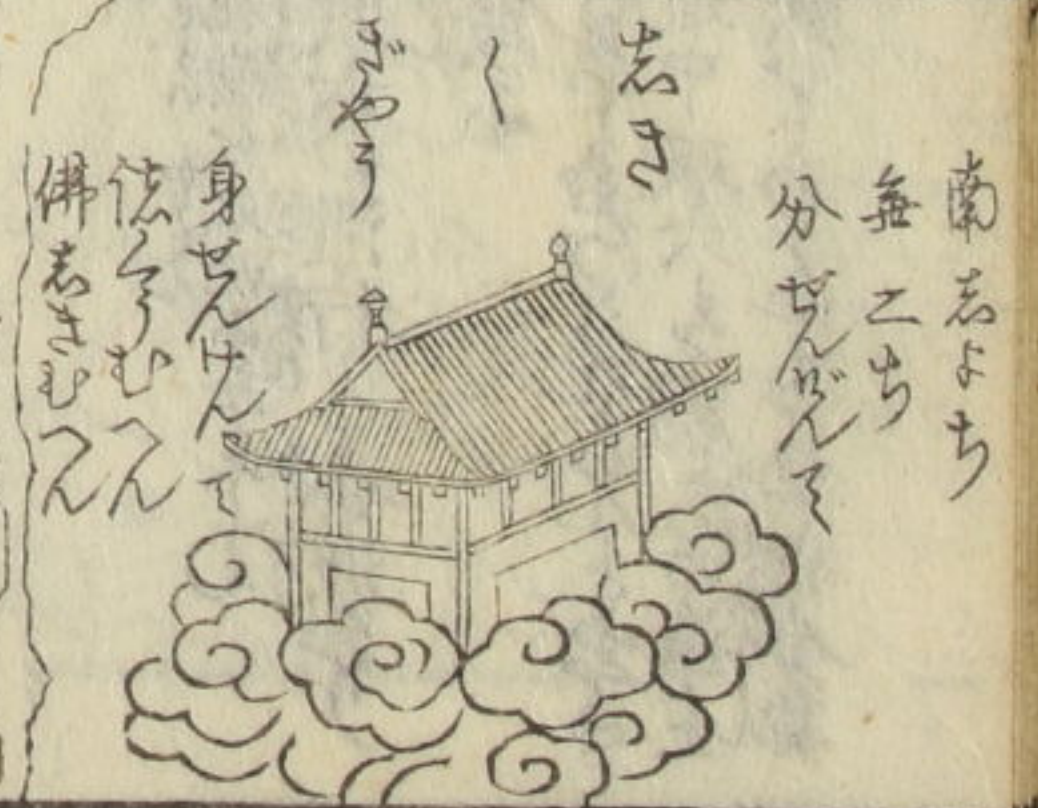 南志よち
無二ち
分ぜんげんて
志き
く
ぎやう
身せんけんて
諸くうむへん
佛志きむへん